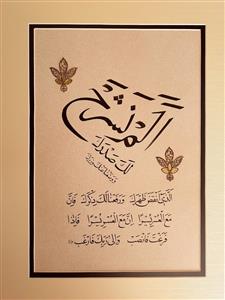 أَلَمْ نَشْرَحْ
لَكَ صَدْرَكَ
وَوَضَعْنَا عَنكَ وِزْرَكَ
الَّذِي أَنقَضَ ظَهْرَكَ وَرَفَعْنَا لَكَ ذِكْرَكَ فَإِنَّ
مَعَ الْعُسْرِ يُسْرًا إِنَّ مَعَ الْعُسْرِ يُسْرًا فَإِذَا
فَرَغْتَ فَانصَبْ وَإِلَى رَبِّكَ فَارْغَب